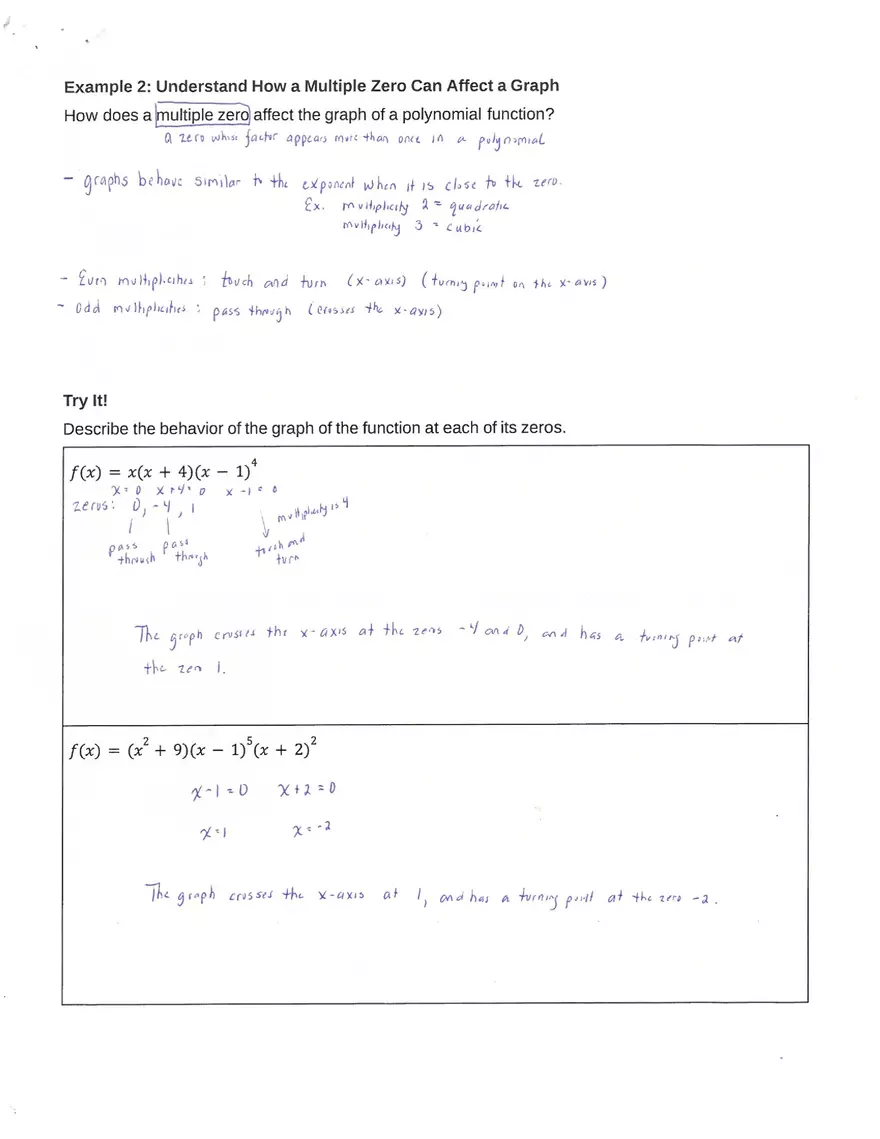 Example 2: Understand How a Multiple Zero Can Affect a Graph
How does a multiple zero affect the graph of a polynomial function?
a zero whose factor appears more than once in a polynomial
- graphs behave similar to the exponent when it is close to the zero.
Ex. multiplicity 2 = quadratic
multiplicity 3 = cubic
- Even multiplicities : touch and turn (x-axis) (turning point on the x-axis)
- Odd multiplicities : pass through (crosses the x-axis)
Try It!
Describe the behavior of the graph of the function at each of its zeros.
f(x) = x(x + 4)(x − 1)⁴
x = 0 x + 4 = 0 x - 1 = 0
zeros: 0, -4, 1
multiplicity is 4
pass through pass through touch and turn
The graph crosses the x-axis at the zeros -4 and 0, and has a turning point at
the zero 1.
f(x) = (x² + 9)(x − 1)⁵(x + 2)²
x-1=0 x+2=0
x=1 x=-2
The graph crosses the x-axis at 1, and has a turning point at the zero -2.